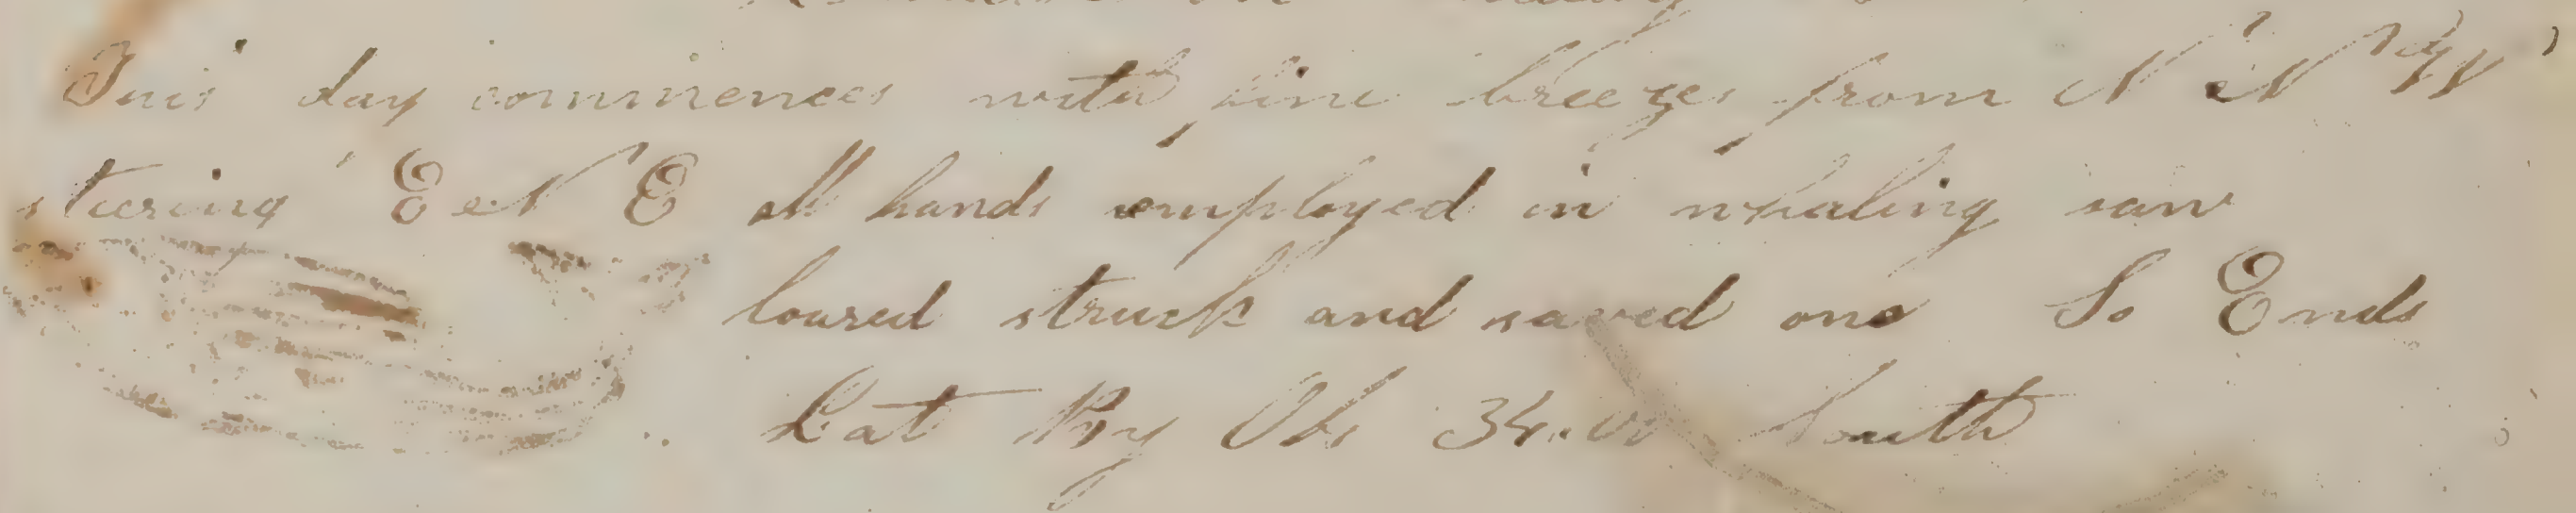 This day commences with fine breezes from N N W
stearing E N E all hands employed in whaling saw
loured struck and saved one So Ends
Lat By Obs 34.00 South